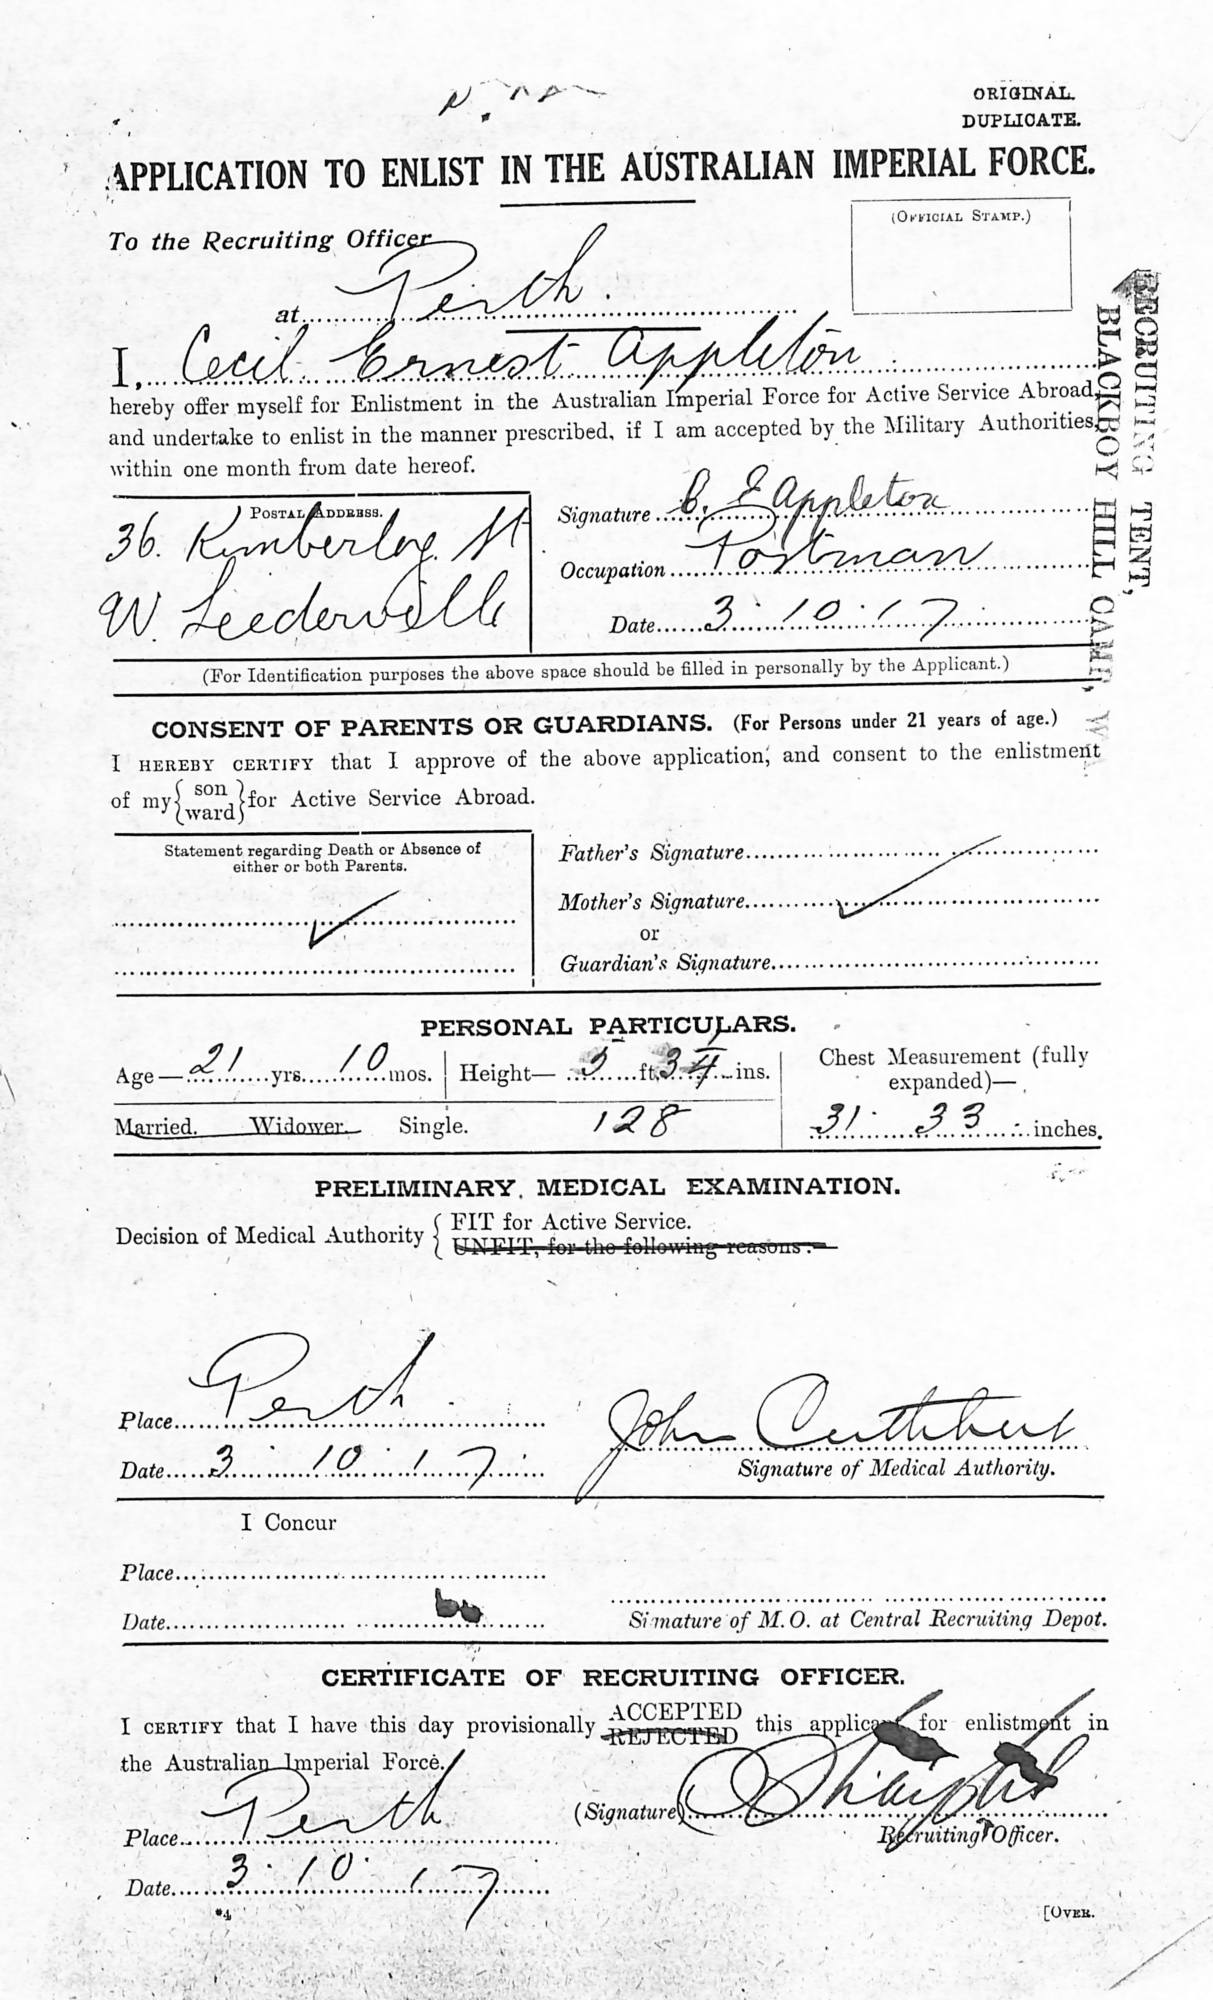 ORIGINAL.
DUPLICATE.
APPLICATION TO ENLIST IN THE AUSTRALIAN IMPERIAL FORCE.
(OFFICIAL STAMP.)
To the Recruiting Officer
at Perth.
I, Cecil Ernest Appleton
hereby offer myself for Enlistment in the Australian Imperial Force for Active Service Abroad,
and undertake to enlist in the manner prescribed, if I am accepted by the Military Authorities,
within one month from date hereof.
RECRUITING TENT,
BLACKBOY HILL CAMP, W
POSTAL ADDRESS.
36. Kimberley St
W. Leederville
Signature C. E Appleton
Occupation Postman
Date 3.10.17
(For Identification purposes the above space should be filled in personally by the Applicant.)
CONSENT OF PARENTS OR GUARDIANS. (For Persons under 21 years of age.)
I HEREBY CERTIFY that I approve of the above application, and consent to the enlistment
of my { son ward } for Active Service Abroad.
Statement regarding Death or Absence of
either or both Parents.
Father's Signature
Mother's Signature
or
Guardian's Signature
PERSONAL PARTICULARS.
Age— 21 yrs. 10 mos. Height— 5 ft. ins.
Chest Measurement (fully
expanded)—
Married. Widower. Single. 128
31 33 inches.
PRELIMINARY MEDICAL EXAMINATION.
Decision of Medical Authority { FIT for Active Service.
UNFIT, for the following reasons:—
Place Perth
Date 3.10.17
John Cuthbert
Signature of Medical Authority.
I Concur
Place
Date
Signature of M.O. at Central Recruiting Depot.
CERTIFICATE OF RECRUITING OFFICER.
I CERTIFY that I have this day provisionally ACCEPTED REJECTED this applicant for enlistment in
the Australian Imperial Force.
(Signature)
Recruiting Officer.
Place Perth
Date 3.10.17
*4
[OVER.